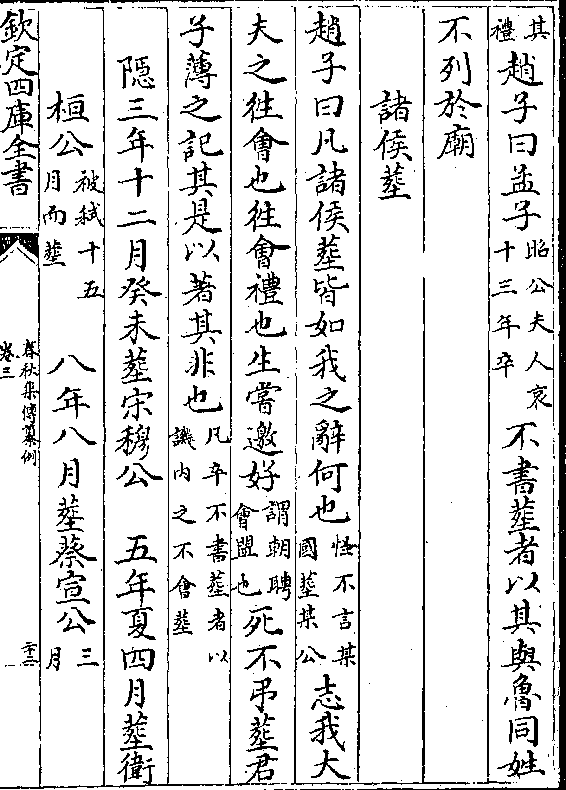 其禮趙子曰孟子昭公夫人哀十三年卒不書葬者以其與魯同姓
不列於廟
諸侯葬
趙子曰凡諸侯葬皆如我之辭何也怪不言某國葬某公志我大
夫之往會也往會禮也生嘗邀好謂朝聘會盟也死不弔葬君
子薄之記其是以著其非也凡卒不書葬者以譏内之不會葬
隠三年十二月癸未葬宋穆公 五年夏四月葬衛
桓公被弑十五月而葬 八年八月葬蔡宣公三月
欽定四庫全書
春秋集傳纂例
卷三
二十三